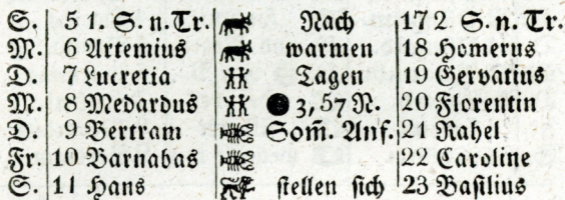 S. 5 1. S. n. Tr. Nach 17 2. S. n. Tr.
M. 6 Artemius warmen 18 Homerus
D. 7 Lucretia Tagen 19 Gervatius
M. 8 Medardus ● 3, 57 N. 20 Florentin
D. 9 Bertram Som̄. Anf. 21 Rahel
Fr. 10 Barnabas 22 Caroline
S. 11 Hans stellen sich 23 Basilius